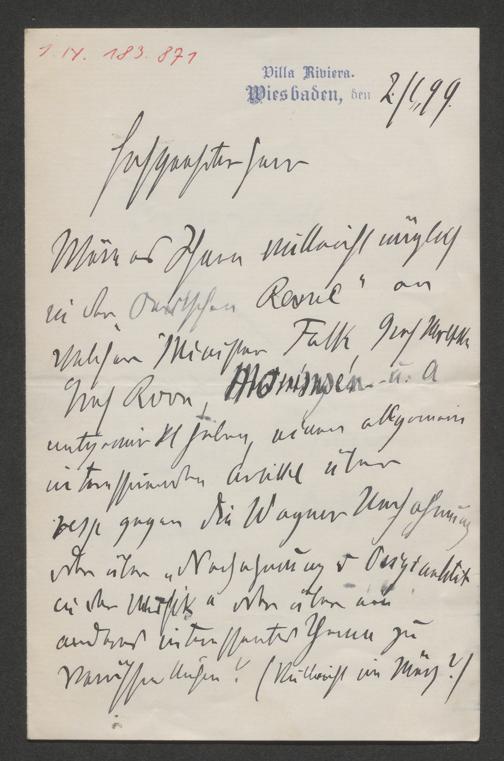 I. N. 183.871
Villa Riviera.
Wiesbaden, den 2/I, 99.
Hochgeehrter Herr
Wäre es Ihnen vielleicht möglich
in der Deutschen Revue" an
welcher Minister Falk, Graf Moltke
Graf Roon, u. A
einen allgemein
interessirenden Artikel über
resp gegen die Wagner Nachahmung
oder über „Nachahmung & Originalität
in der Musik" oder über ein
anderes interessantes Thema zu
veröffentlichen? (Vielleicht im März?)